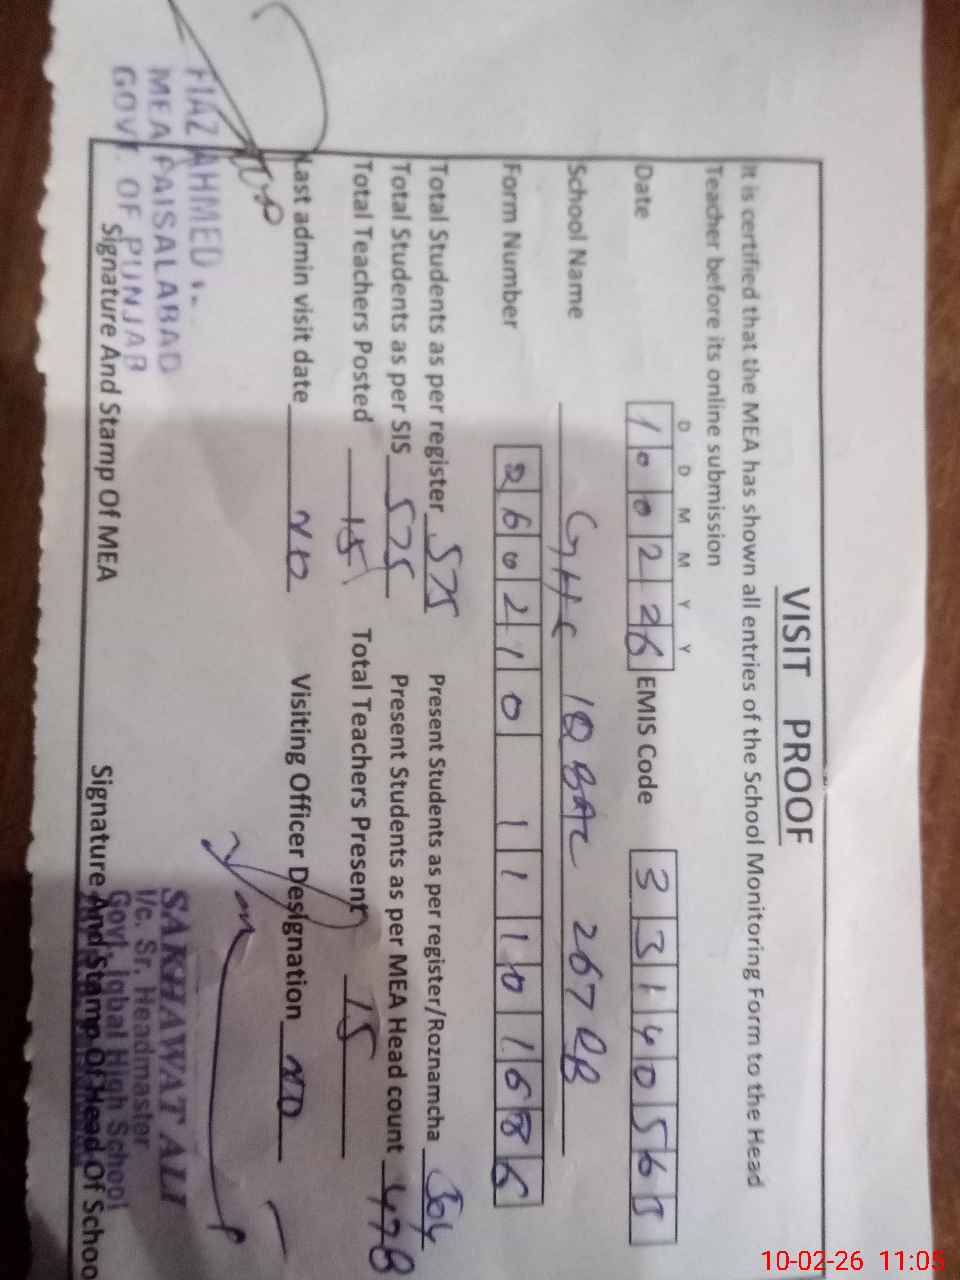 VISIT PROOF
It is certified that the MEA has shown all entries of the School Monitoring Form to the Head
Teacher before its online submission
D D M M Y Y
Date 1 0 0 2 2 6 EMIS Code 3 3 1 4 0 5 6 5
School Name GHS IQBAL 267 RB
Form Number 2 6 0 2 1 0 1 1 1 0 1 6 8 6
Total Students as per register 575 Present Students as per register/Roznamcha 504
Total Students as per SIS 575 Present Students as per MEA Head count 478
Total Teachers Posted 15 Total Teachers Present 15
Last admin visit date ND Visiting Officer Designation ND
AHMED
MEA FAISALABAD
GOVT. OF PUNJAB
Signature And Stamp Of MEA
SAKHAWAT ALI
I/c. Sr. Headmaster
Govt. Iqbal High School
Signature And Stamp Of Head Of Schoo
10-02-26 11:05